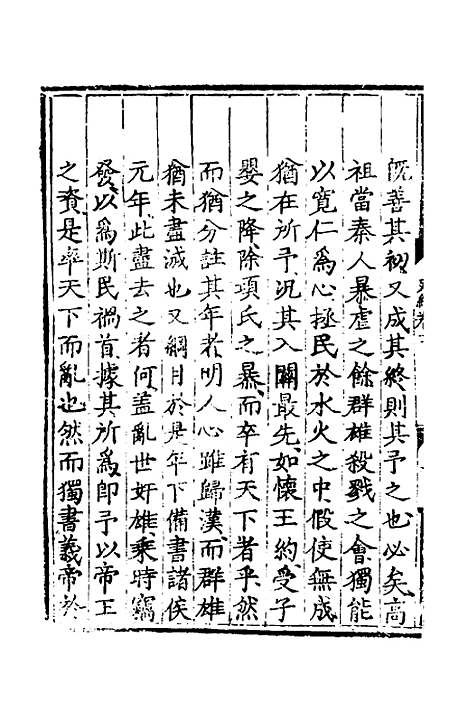 既善其初又成其終則其予之也必矣高
祖當秦人暴虐之餘群雄殺戮之會獨能
以寬仁爲心拯民於水火之中假使無成
猶在所予况其入關最先如懷王約受子
嬰之降除項氏之暴而卒有天下者乎然
而猶分註其年者明人心雖歸漢而群雄
猶未盡滅也又綱目於是年下備書諸侯
元年此盡去之者何蓋亂世奸雄乘時竊
發以爲斯民禍首據其所爲卽予以帝王
之資是率天下而亂也然而獨書義帝於